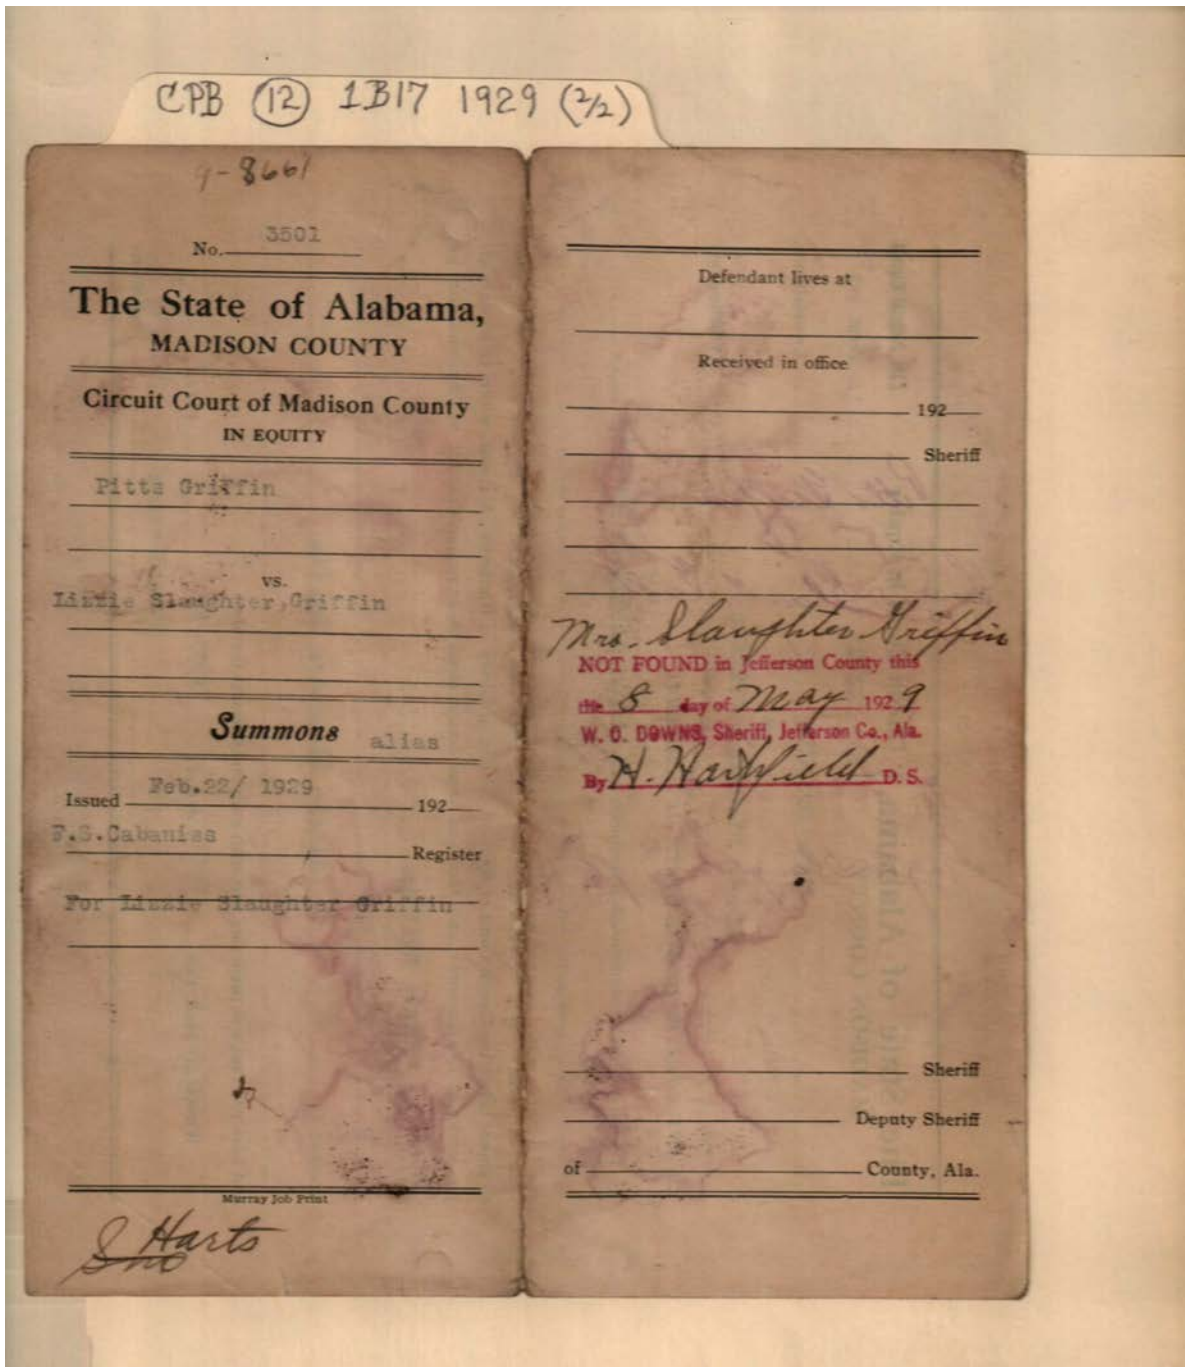 CPB (12) 1B17 1929 (2/2)
9-8661
No. 3501
The State of Alabama,
MADISON COUNTY
Circuit Court of Madison County
IN EQUITY
Pitts Griffin
vs.
Lizzie Slaughter, Griffin
Summons alias
Issued Feb.22/ 1929 192
F.S.Cabaniss
Register
For Lizzie Slaughter Griffin
Murray Job Print
Harts
Defendant lives at
Received in office
192
Sheriff
Mrs. Slaughter Griffin
NOT FOUND in Jefferson County this
the 8 day of May 1929
W. O. DOWNS, Sheriff, Jefferson Co., Ala.
By H. Hartfield D. S.
Sheriff
Deputy Sheriff
of County, Ala.